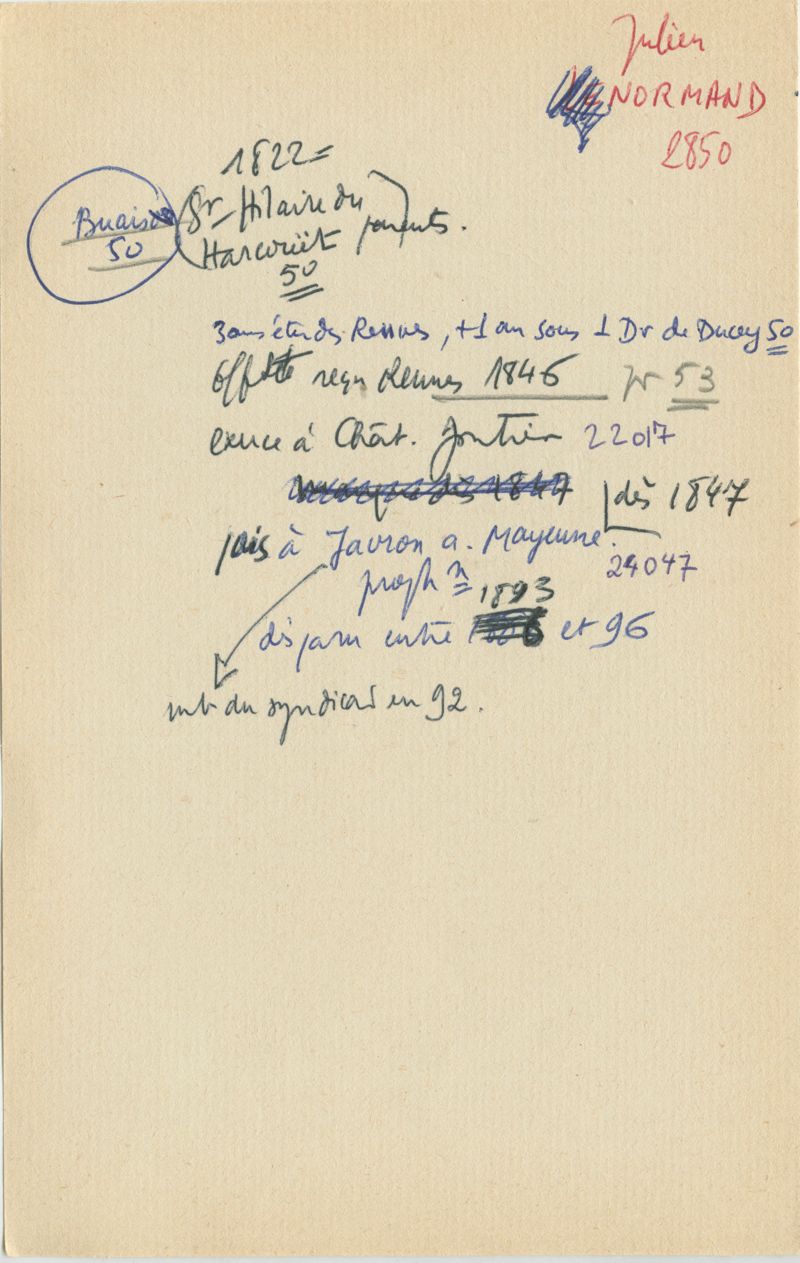 Julien
NORMAND
2850
1822
Buais
50
(St Hilaire du
Harcouët
parents.
50
3 ans étu des Rennes, +1 an sous 1 Dr de Ducey 50
reçu Rennes 1846 pr 53
exerce à Chât. Gontier 22017
dès 1847
puis à Javron a. Mayenne.
24047
1893
disparu entre et 96
mb du syndicat en 92.